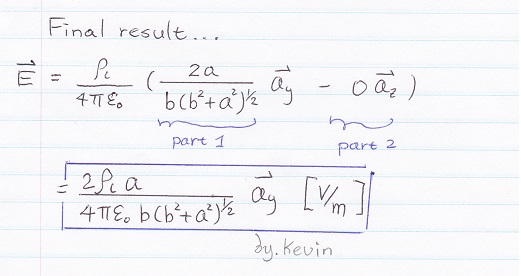 Final result...
E⃗ = ρℓ / 4πε₀ ( 2a / b(b²+a²)^½ a⃗y - 0 a⃗z )
part 1 part 2
= 2ρℓ a / 4πε₀ b(b²+a²)^½ a⃗y [V/m]
by. Kevin